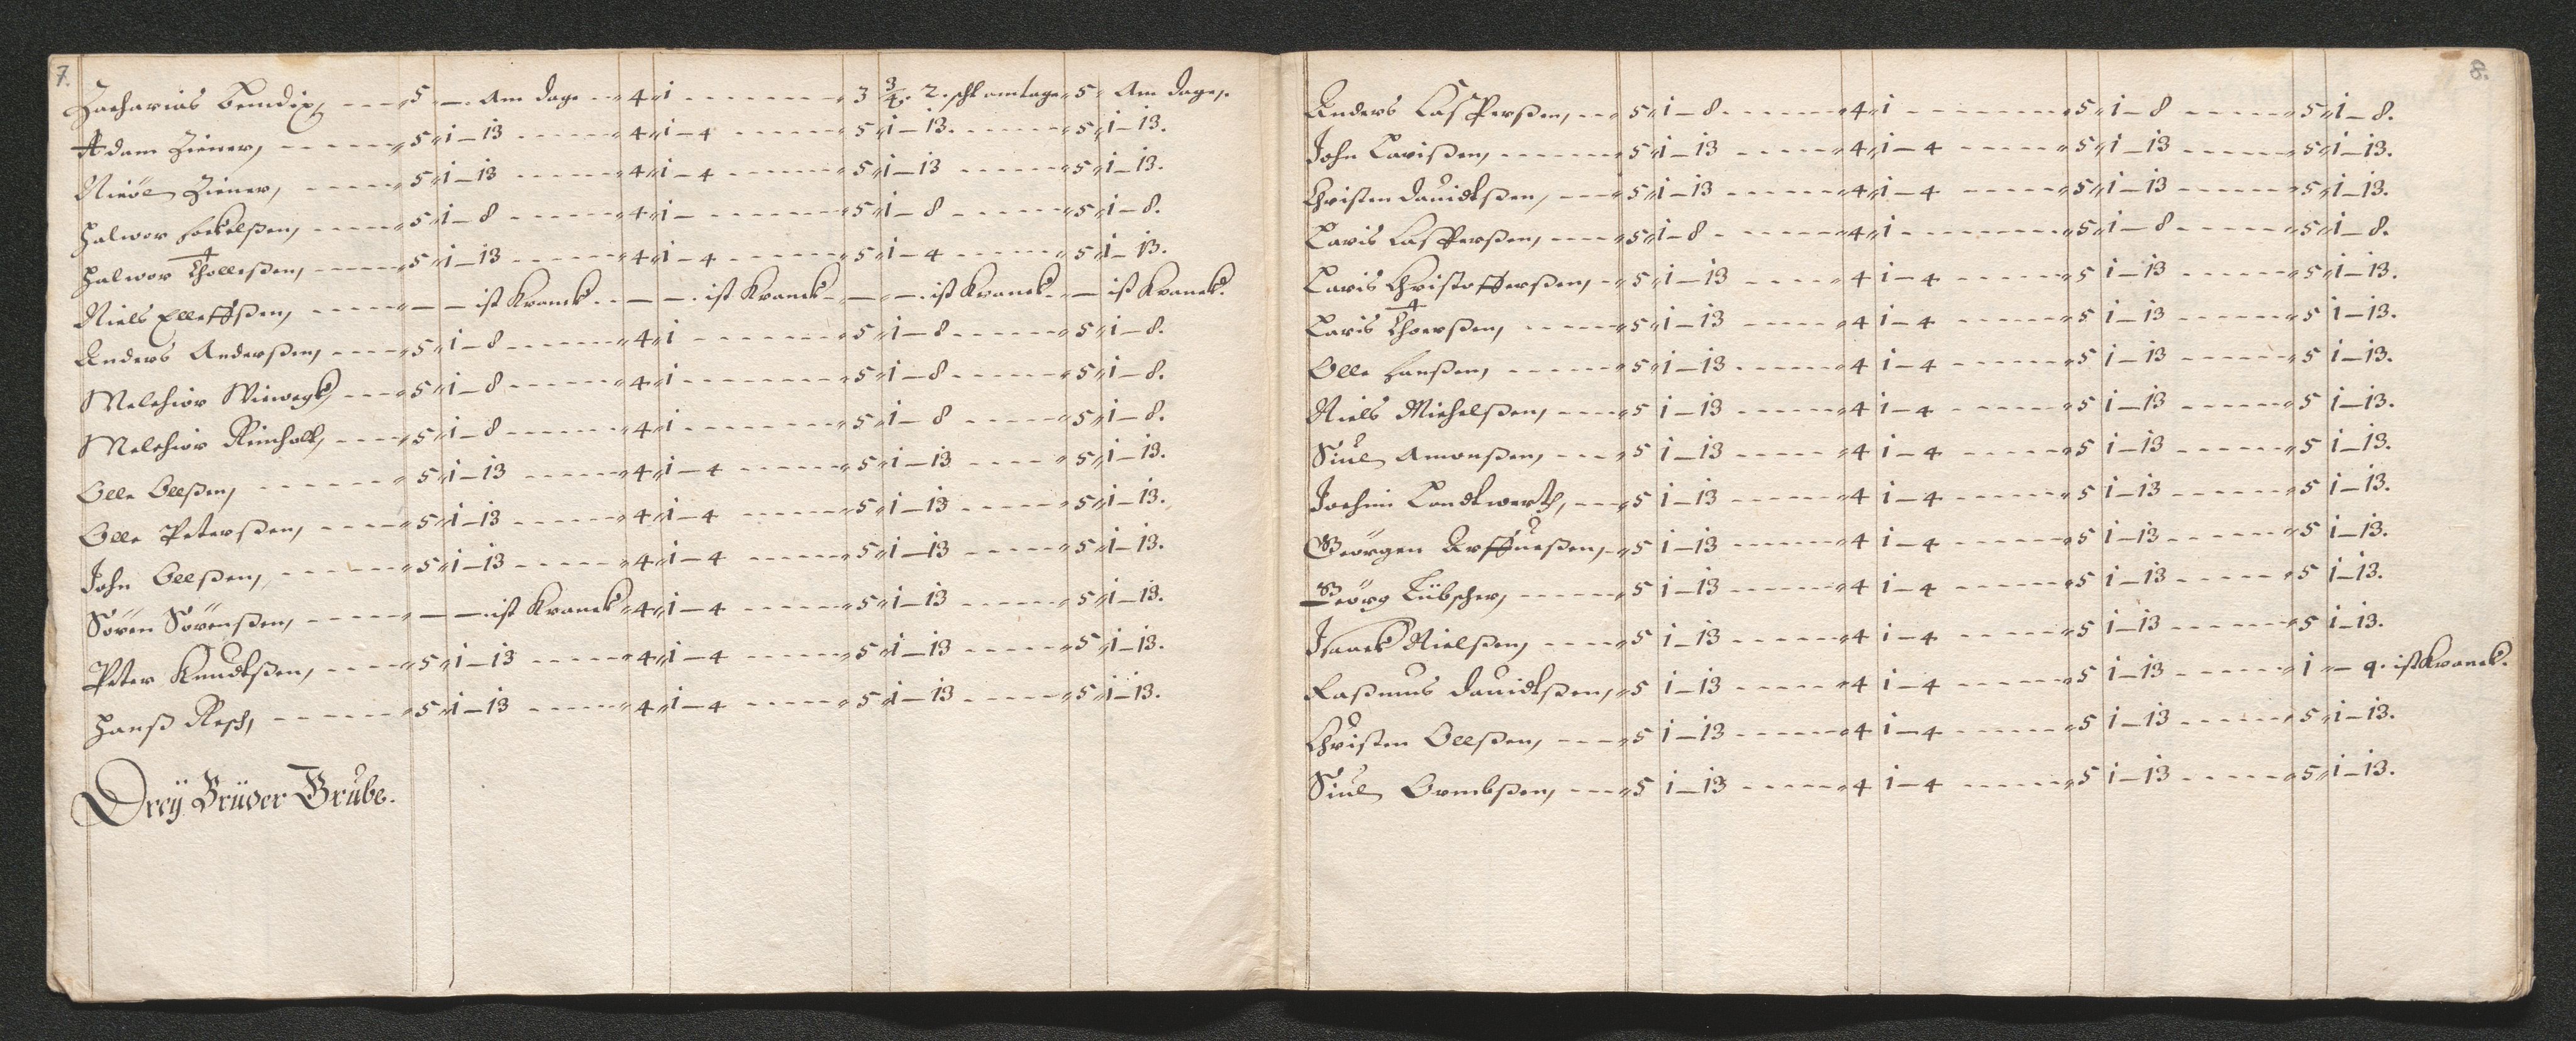 7.
Zacharias Bendix, ---- 5 -. Am dage -- 4 " i -------- 3 3/4. 2. schl am tage " 5 " Am dage,.
Adam Ziener, ------ " 5 " i - 13 ------ " 4 " i - 4 ------ " 5 " i - 13. ------ " 5 " i - 13.
Nicol Ziener, ----- " 5 " i - 13 ------ " 4 " i - 4 ------ " 5 " i - 13 ------ " 5 " i - 13.
Halwor ----- " 5 " i - 8 ------ " 4 " i - ------ " 5 " i - 8 ------ " 5 " i - 8.
Halwor Thollessen, ----- " 5 " i - 13 ------ " 4 " i - 4 ------ " 5 " i - 4 ------ " 5 " i - 13.
Niels Elleffssen, ------ - - ist Kranck -- - - . ist Kranck - - - . ist Kranck - - ist Kranck.
Anders Anderssen, ----- " 5 " i - 8 ------ " 4 " i ------ " 5 " i - 8 ------ " 5 " i - 8.
Melchior ---- " 5 " i - 8 ------ " 4 " i ------ " 5 " i - 8 ------ " 5 " i - 8.
Melchior Reinholt, ---- " 5 " i - 8 ------ " 4 " i ------ " 5 " i - 8 ------ " 5 " i - 8.
Olle Ollssen, ------ " 5 " i - 13 ------ " 4 " i - 4 ------ " 5 " i - 13 ------ " 5 " i - 13.
Olle Peterssen, ----- " 5 " i - 13 ------ " 4 " i - 4 ------ " 5 " i - 13 ------ " 5 " i - 13.
John Ollssen, ------ " 5 " i - 13 ------ " 4 " i - 4 ------ " 5 " i - 13 ------ " 5 " i - 13.
Sören Sörenssen, ------ - - . ist Kranck " 4 " i - 4 ------ " 5 " i - 13 ------ " 5 " i - 13.
Peter Knudtssen, ----- " 5 " i - 13 ------ " 4 " i - 4 ------ " 5 " i - 13 ------ " 5 " i - 13.
Hanss Resch, ------ " 5 " i - 13 ------ " 4 " i - 4 ------ " 5 " i - 13 ------ " 5 " i - 13.
Dreÿ Brüder Grube.
8.
Anders Cassperssen, -- " 5 " i - 8. ------ " 4 " i ------ " 5 " i - 8 ------ " 5 " i - 8.
John Larissen, ------ " 5 " i - 13 ------ " 4 " i - 4 ------ " 5 " i - 13 ------ " 5 " i - 13.
Christen Dauidtssen, --- " 5 " i - 13 ------ " 4 " i - 4 ------ " 5 " i - 13 ------ " 5 " i - 13.
Laris Cassperssen, ---- " 5 " i - 8 ------ " 4 " i ------ " 5 " i - 8 ------ " 5 " i - 8.
Laris Christofferssen, - " 5 " i - 13 ------ " 4 i - 4 ------ " 5 i - 13 ------ " 5 " i - 13.
Laris Thoerssen, ----- " 5 " i - 13 ------ " 4 i - 4 ------ " 5 i - 13 ------ " 5 i - 13.
Olle Hanssen, ------ " 5 " i - 13 ------ " 4 i - 4 ------ " 5 i - 13 ------ " 5 i - 13.
Niels Michelssen, ---- " 5 i - 13 ------ " 4 i - 4 ------ " 5 i - 13 ------ " 5 i - 13.
Siul Amonssen, ---- " 5 i - 13 ------ " 4 i - 4 ------ " 5 i - 13 ------ " 5 i - 13.
Jochim Landtwerth, --- " 5 i - 13 ------ " 4 i - 4 ------ " 5 i - 13 ------ " 5 i - 13.
Geörgen - " 5 i - 13 ------ " 4 i - 4 ------ " 5 i - 13 ------ " 5 i - 13.
Geörg Lübscher, ----- " 5 i - 13 ------ " 4 i - 4 ------ " 5 i - 13 ------ " 5 i - 13.
Isaack Nielssen, ---- " 5 i - 13 ------ " 4 i - 4 ------ " 5 i - 13 ------ " 5 i - 13.
Rassmus Dauidtssen, " 5 i - 13 ------ " 4 i - 4 ------ " 5 i - 13 ------ " i " - 9. ist Kranck.
Christen Ollssen, ---- " 5 i - 13 ------ " 4 i - 4 ------ " 5 i - 13 ------ " 5 " i - 13.
Siul Ormbssen, ---- " 5 i - 13 ------ " 4 i - 4 ------ " 5 i - 13 ------ " 5 " i - 13.